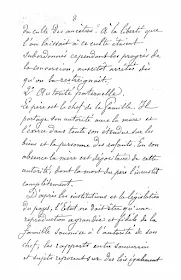 8
du culte des ancêtres. À la liberté que
l'on laissait à ce culte étaient
subordonnés cependant les progrès de
la conversion, aussitôt arrêtés dès
qu'on la restreignait.
2° Autorité paternelle.
Le père est le chef de la famille. Il
partage son autorité avec la mère et
l'exerce dans toute son étendue sur les
biens et la personne des enfants. En son
absence la mère est dépositaire de cette
autorité, dont la mort du père l'investit
complètement.
D'après les institutions et la législation
du pays, l'État ne doit être qu'une
reproduction agrandie et fidèle de la
famille soumise à l'autorité de son
chef, les rapports entre souverain
et sujets reposent sur des lois également